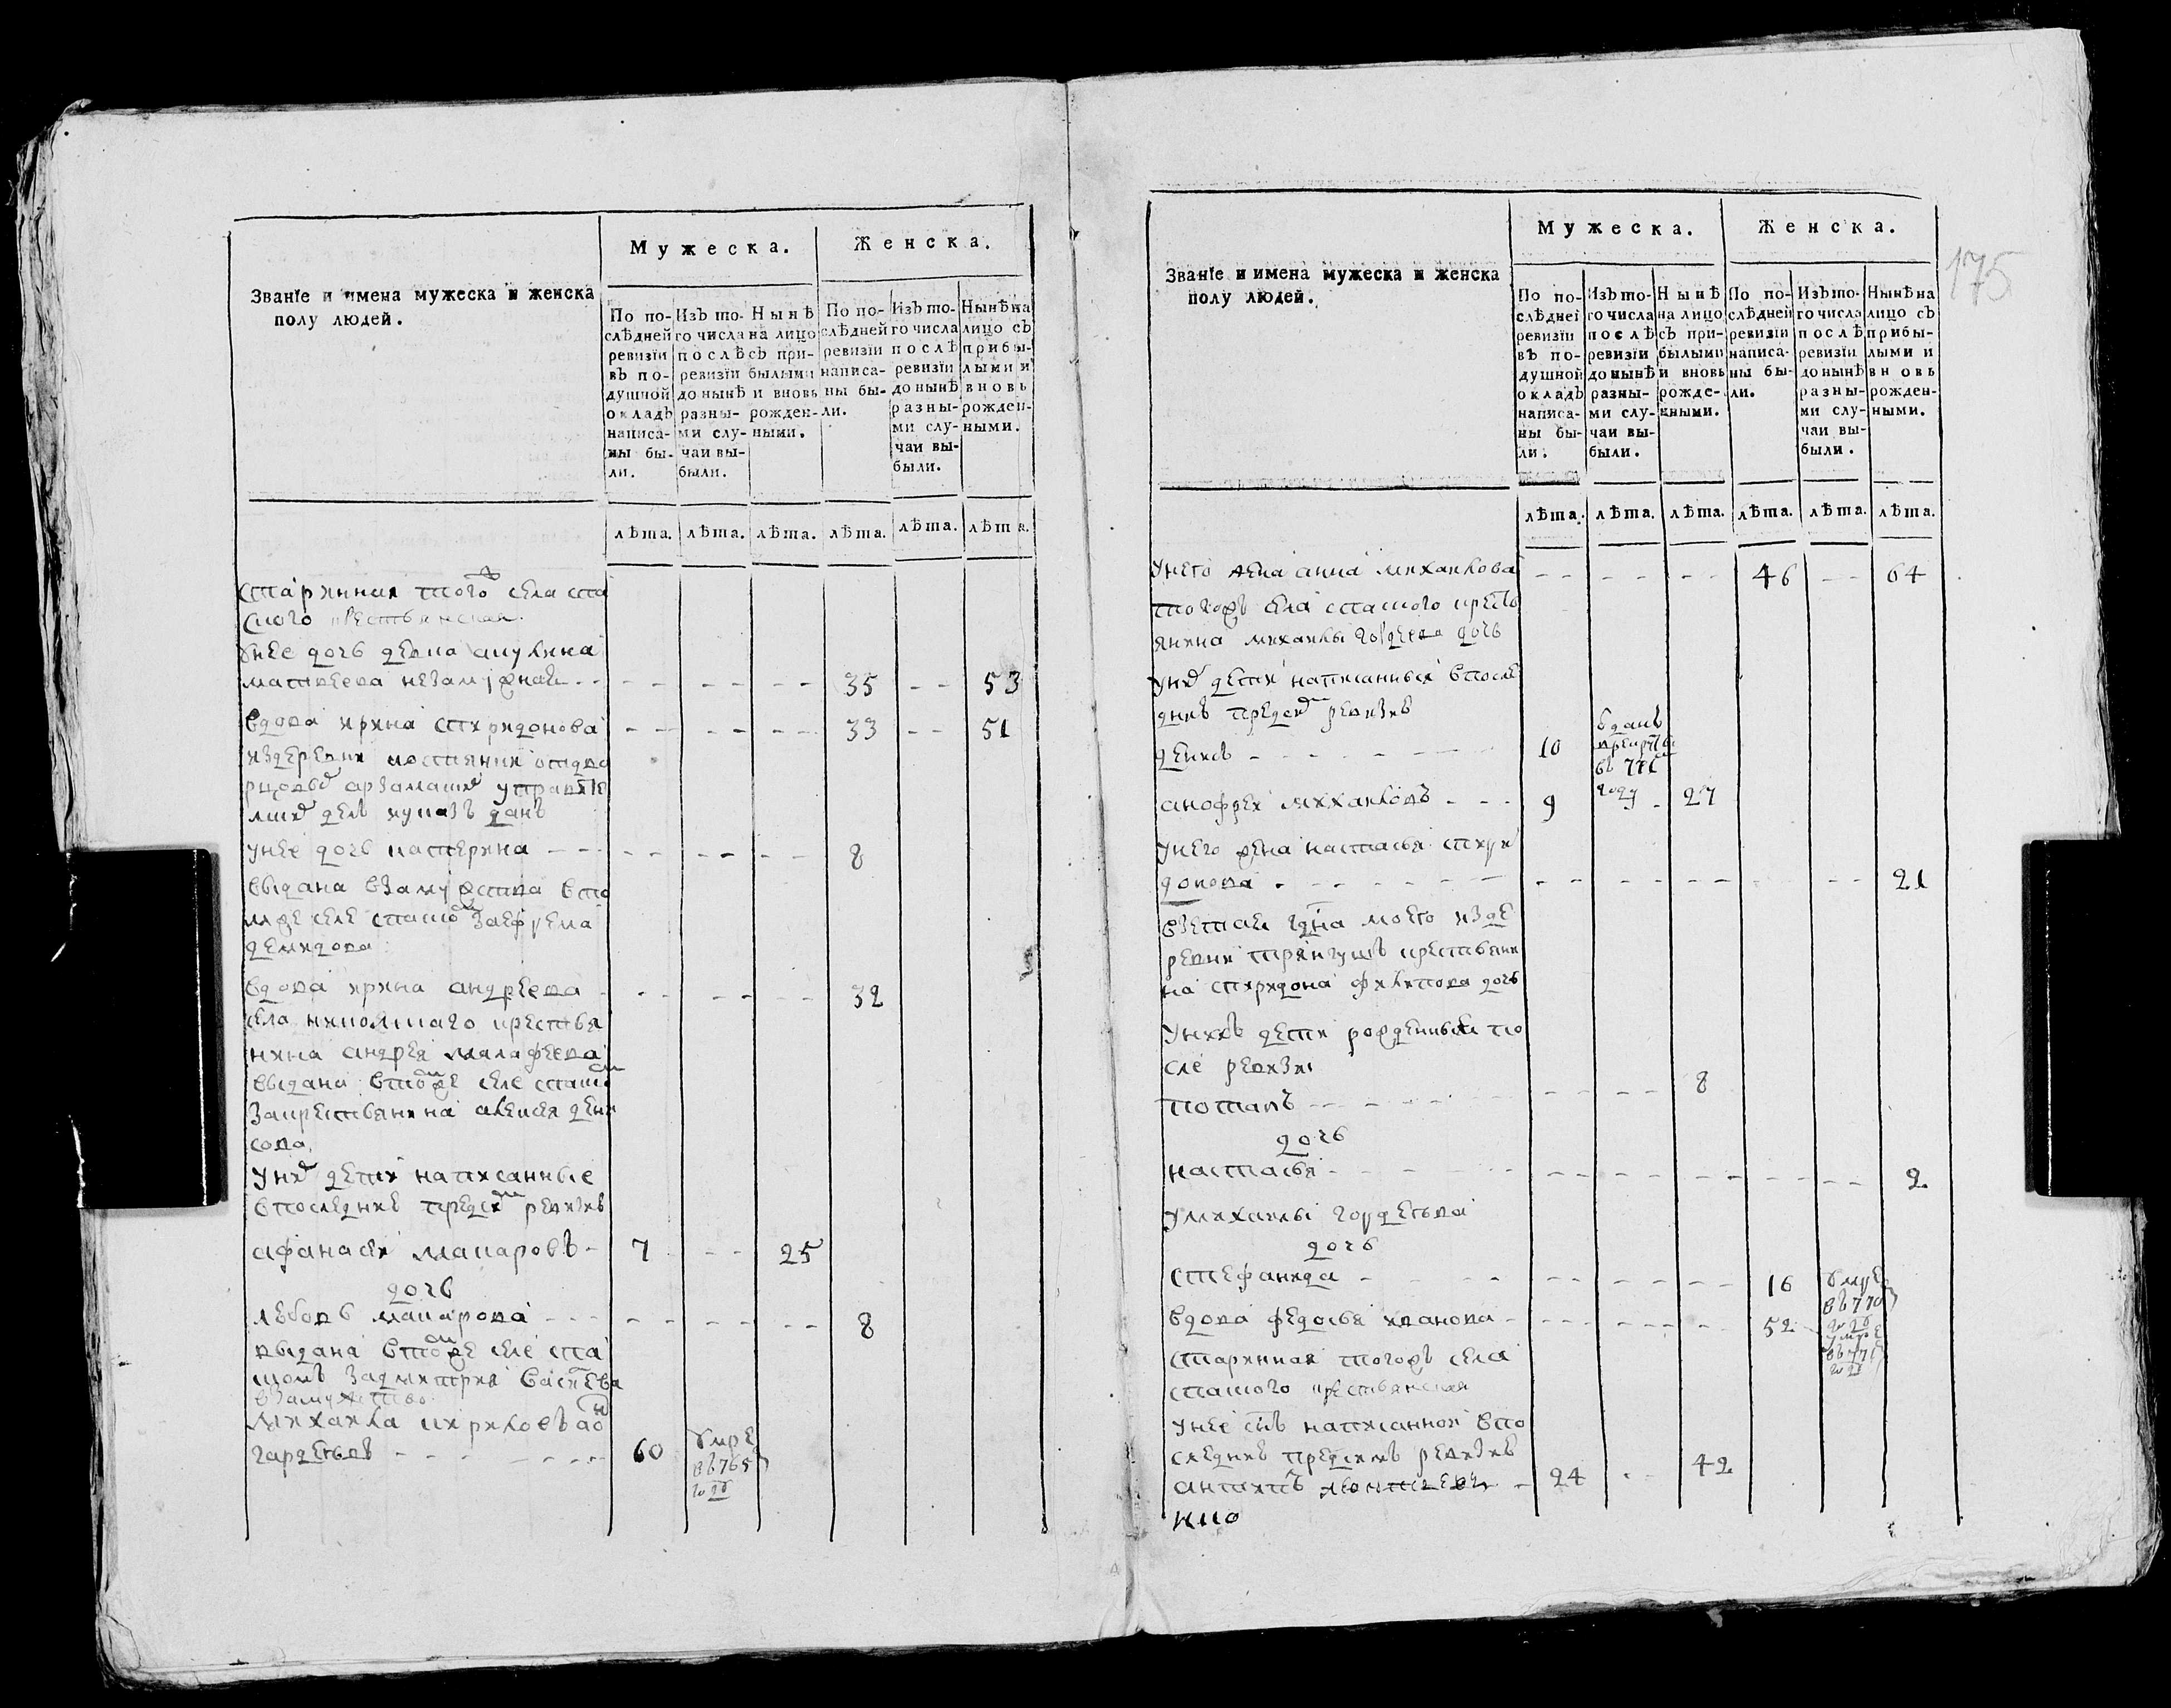 Званїе и имена мужеска и женска
полу людей.
Мужеска.
Женска.
По по-
слѣдней
ревизїи
въ по-
душной
окладѣ
написа-
ны бы-
ли.
Изъ то-
го числа
послѣ
ревизїи
до нынѣ
разны-
ми слу-
чаи вы-
были.
Нынѣ
на лицо
съ при-
былыми
и вновь
рожден-
ными.
По по-
слѣдней
ревизїи
написа-
ны бы-
ли.
Изъ то-
го числа
послѣ
ревизїи
до нынѣ
разны-
ми слу-
чаи вы-
были.
Нынѣ на
лицо съ
прибы-
лыми и
вновь
рожден-
ными.
лѣта. лѣта. лѣта. лѣта. лѣта. лѣта.
старинная того ж села спа
ского крестьянская
унее дочь девка акулина
матвеева незамужная 35 53
вдова ирина спиридонова 33 51
издеревни
дел указъ данъ
унее дочь катерина 8
выдана взамужства вто
мже селе спаском заефрема
демидова
вдова ирина андреева 32
села никольского крестья
нина андрея малафеева
выдана втом же селе спаском
закрестьянина алексея дени
сова
уних дети написанные
впоследнею пред сим ревизию
афанасей макаровъ 7 25
дочь
любовь макарова 8
выдана втом же селе спа
скомъ задмитрия
взамужство
михаила кириловъ
гардеевъ 60 умре
въ 765
году
Званїе и имена мужеска и женска
полу людей.
Мужеска.
Женска.
По по-
слѣдней
ревизїи
въ по-
душной
окладѣ
написа-
ны бы-
ли.
Изъ то-
го числа
послѣ
ревизїи
до нынѣ
разны-
ми слу-
чаи вы-
были.
Нынѣ
на лицо
съ при-
былыми
и вновь
рожде-
нными.
По по-
слѣдней
ревизїи
написа-
ны бы-
ли.
Изъ то-
го числа
послѣ
ревизїи
до нынѣ
разны-
ми слу-
чаи вы-
были.
Нынѣ на
лицо съ
прибы-
лыми и
вновь
рожден-
ными.
175
лѣта. лѣта. лѣта. лѣта. лѣта. лѣта.
унего жена анна михаилова 46 64
тогожъ села спаского кресть
янина михаилы гордеева дочь
уних дети написанныя впосле
днею пред сим ревизию
денисъ 10 вданъ
врекруты
въ
году
анофреи михаиловъ 9 27
унего жена настасья спири
донова 21
взетая гдна моего изде
ревни крестьяни
на спиридона филипова дочь
унихъ дети рожденныя по
сле ревизи
потапъ 8
дочь
настасья 2
умихаилы гордеева
дочь
стефанида 16 умре
въ 770
году
вдова федосья иванова 52 умре
въ
году
старинная тогожъ села
спаского крестьянская
унее снъ написанной впо
следнею предсимъ ревизию
антипъ 24 42